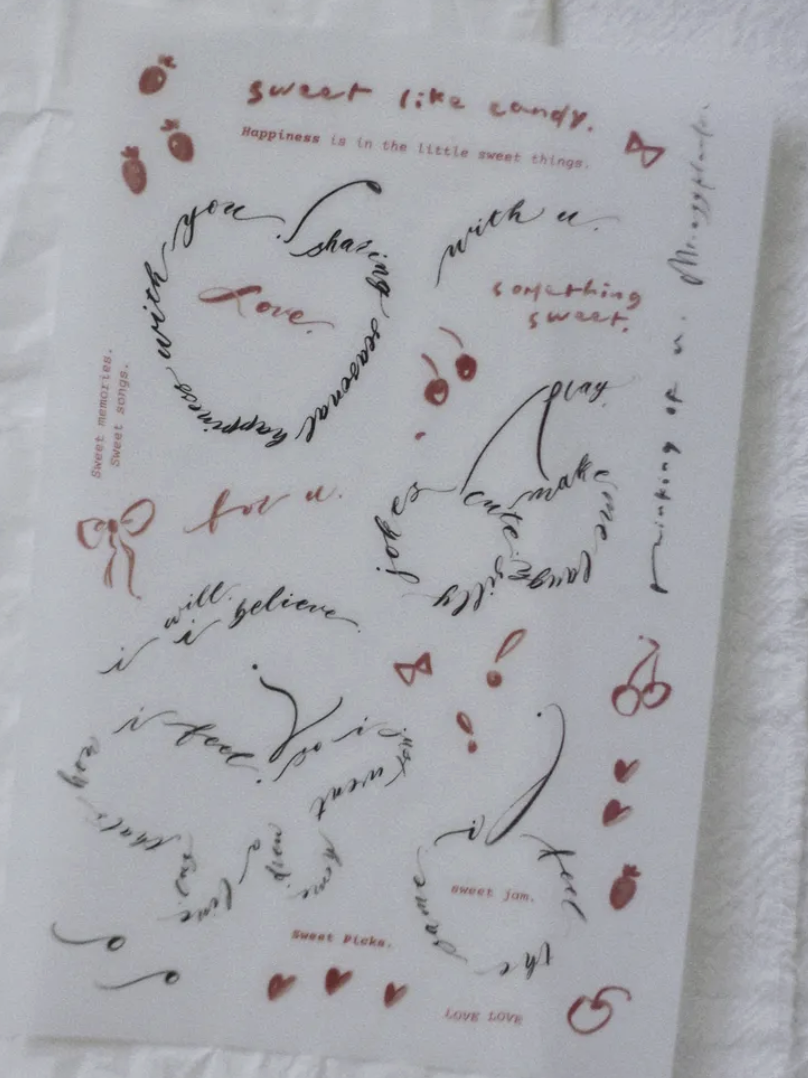 sweet like candy.
Happiness is in the little sweet things.
sharing seasonal happiness with you.
Love.
with u.
something
sweet.
Sweet memories.
Sweet songs.
play
make me laugh
silly cute jokes
for u.
i will. i believe.
i feel
you
that's
line
i
just want
a
time
thinking of u.
i feel the same
sweet jam.
Sweet Picks.
LOVE LOVE